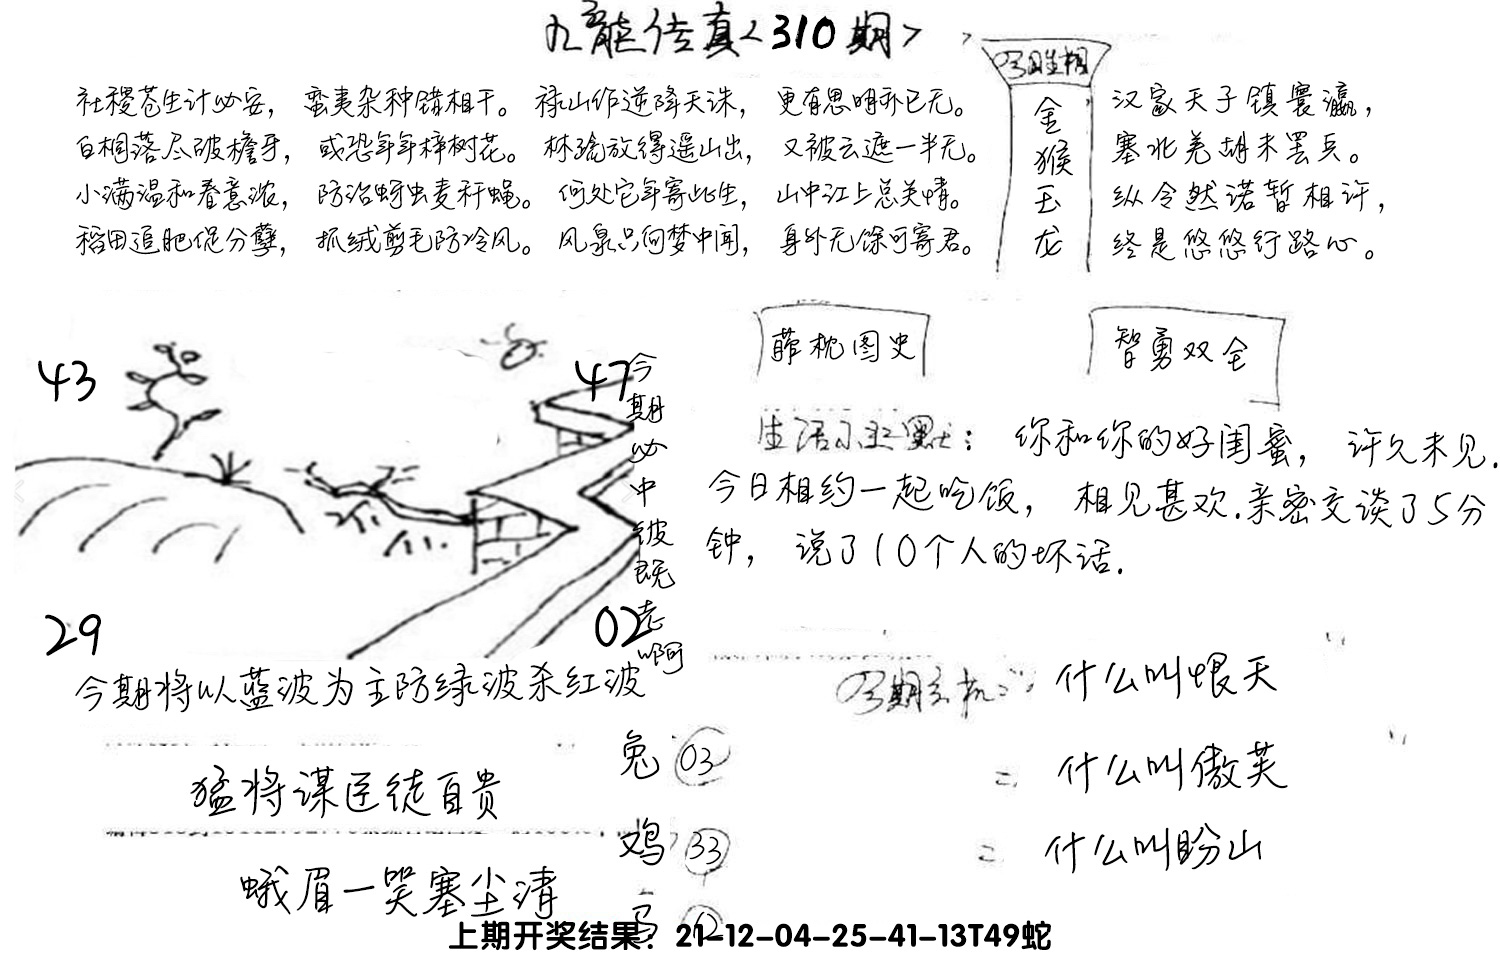 九龙传真<310期>
社稷苍生计必安，蛮夷杂种错相干。禄山作逆降天诛，更有思明亦已无。
白桐落尽破檐牙，或恐年年梓树花。林瑜放得遥山出，又被云遮一半无。
小满温和春意浓，防治蚜虫麦秆蝇。何处它年寄此生，山中江上总关情。
稻田追肥促分孽，抓绒剪毛防冷风。风泉只向梦中闻，身外无馀可寄君。
金猴玉龙
汉家天子镇寰瀛，
塞北羌胡未罢兵。
纵令然诺暂相许，
终是悠悠行路心。
43
47
29
02
今期必中彼既老啊
枕图史
智勇双全
生活小幽默：你和你的好闺蜜，许久未见.
今日相约一起吃饭，相见甚欢.亲密交谈了5分
钟，说了10个人的坏话.
今期将以蓝波为主防绿波杀红波
今期玄机：什么叫恨天
什么叫傲芙
什么叫盼山
猛将谋臣徒自贵
蛾眉一笑塞尘清
兔 03
鸡 33
马 12
上期开奖结果：21-12-04-25-41-13T49蛇